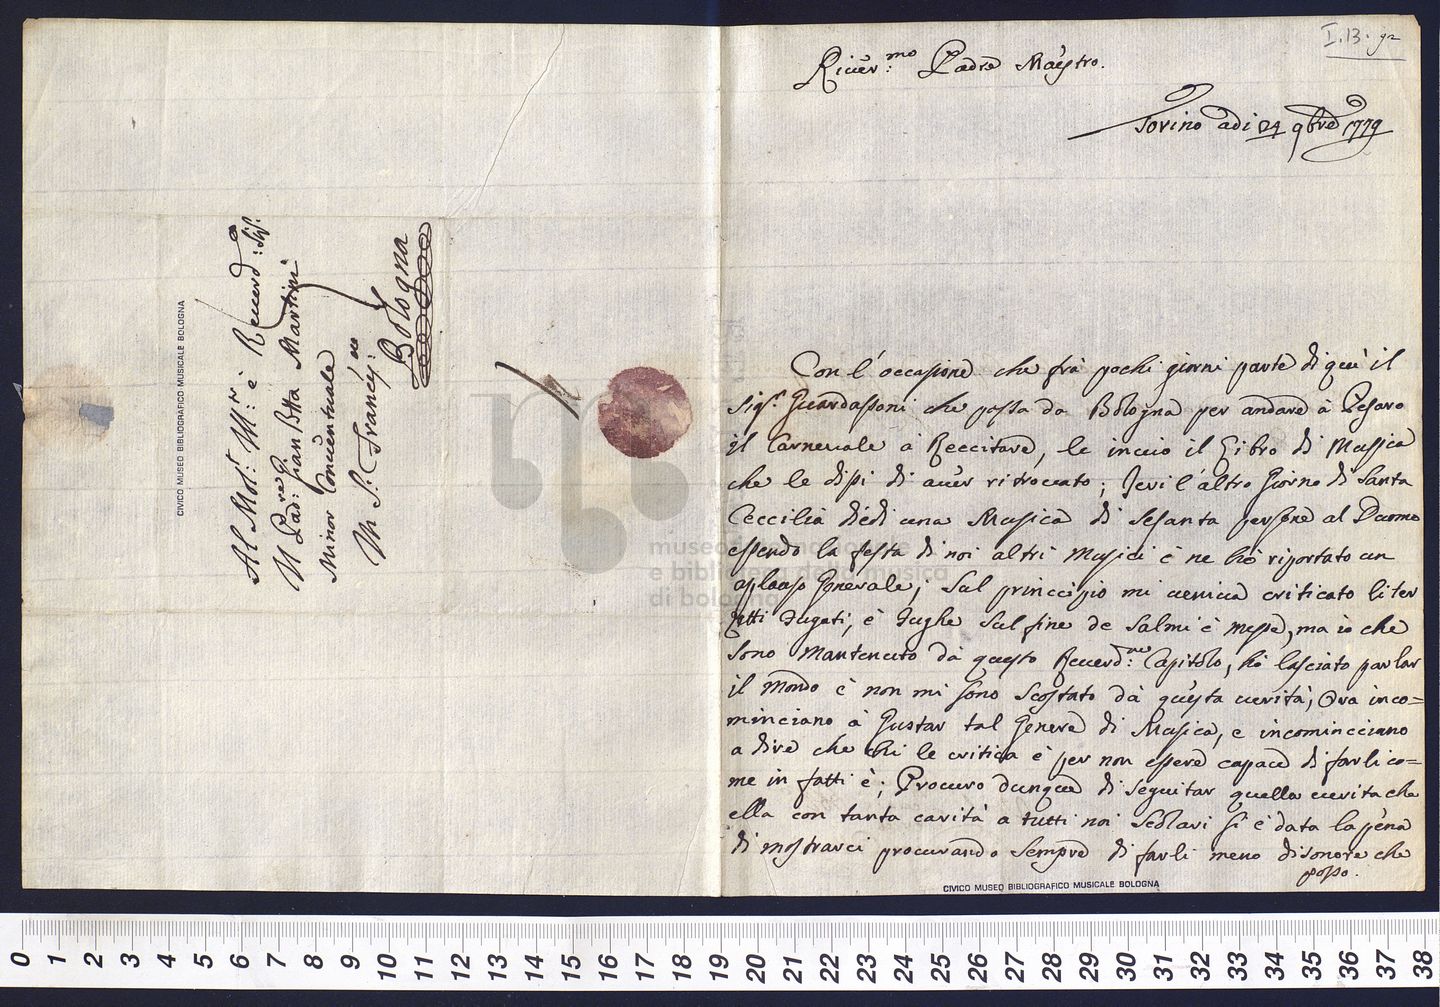 I. 13. 92
River:mo Padre Maestro.
Torino adi 24 9bre 1779
Con l'occasione che frà pochi giorni parte di quì il
Sig:r Guardassoni che passa da Bologna per andare à Pesaro
il Carnevale à Reccitare, le invio il Libro di Mussica
che le dissi di aver ritrovato; Jeri l'altro Giorno di Santa
Ceccilia diedi una Musica di Sesanta persone al Duomo
essendo la festa di noi altri Musici è ne hò riportato un
aplauso Generale; Sul princcipio mi veniva criticato li ter
zetti fugati, è fughe Sul fine de Salmi è messe, ma io che
Sono mantenuto dà questo Reverd:mo Capitolo, hò lasciato parlar
il mondo è non mi sono Scostato dà questa verità; Ora inco=
minciano à Gustar tal Genere di Musica, e incomincciano
a dire che chi le critica è per non essere capace di farli co=
me in fatti è; Procuro dunque di Seguitar quella verita che
ella con tanta carità a tutti noi Scolari si è data la pena
di mostrarci procurando Sempre di farli meno disonore che
posso.
Al Mol: M:r è Reverd: Sig:
Il Pad:re Gian Btta Martini
Minor Conventuale
In S: Franc:co
Bologna
CIVICO MUSEO BIBLIOGRAFICO MUSICALE BOLOGNA
CIVICO MUSEO BIBLIOGRAFICO MUSICALE BOLOGNA
museo internazionale
e biblioteca della musica
di bologna
0 1 2 3 4 5 6 7 8 9 10 11 12 13 14 15 16 17 18 19 20 21 22 23 24 25 26 27 28 29 30 31 32 33 34 35 36 37 38